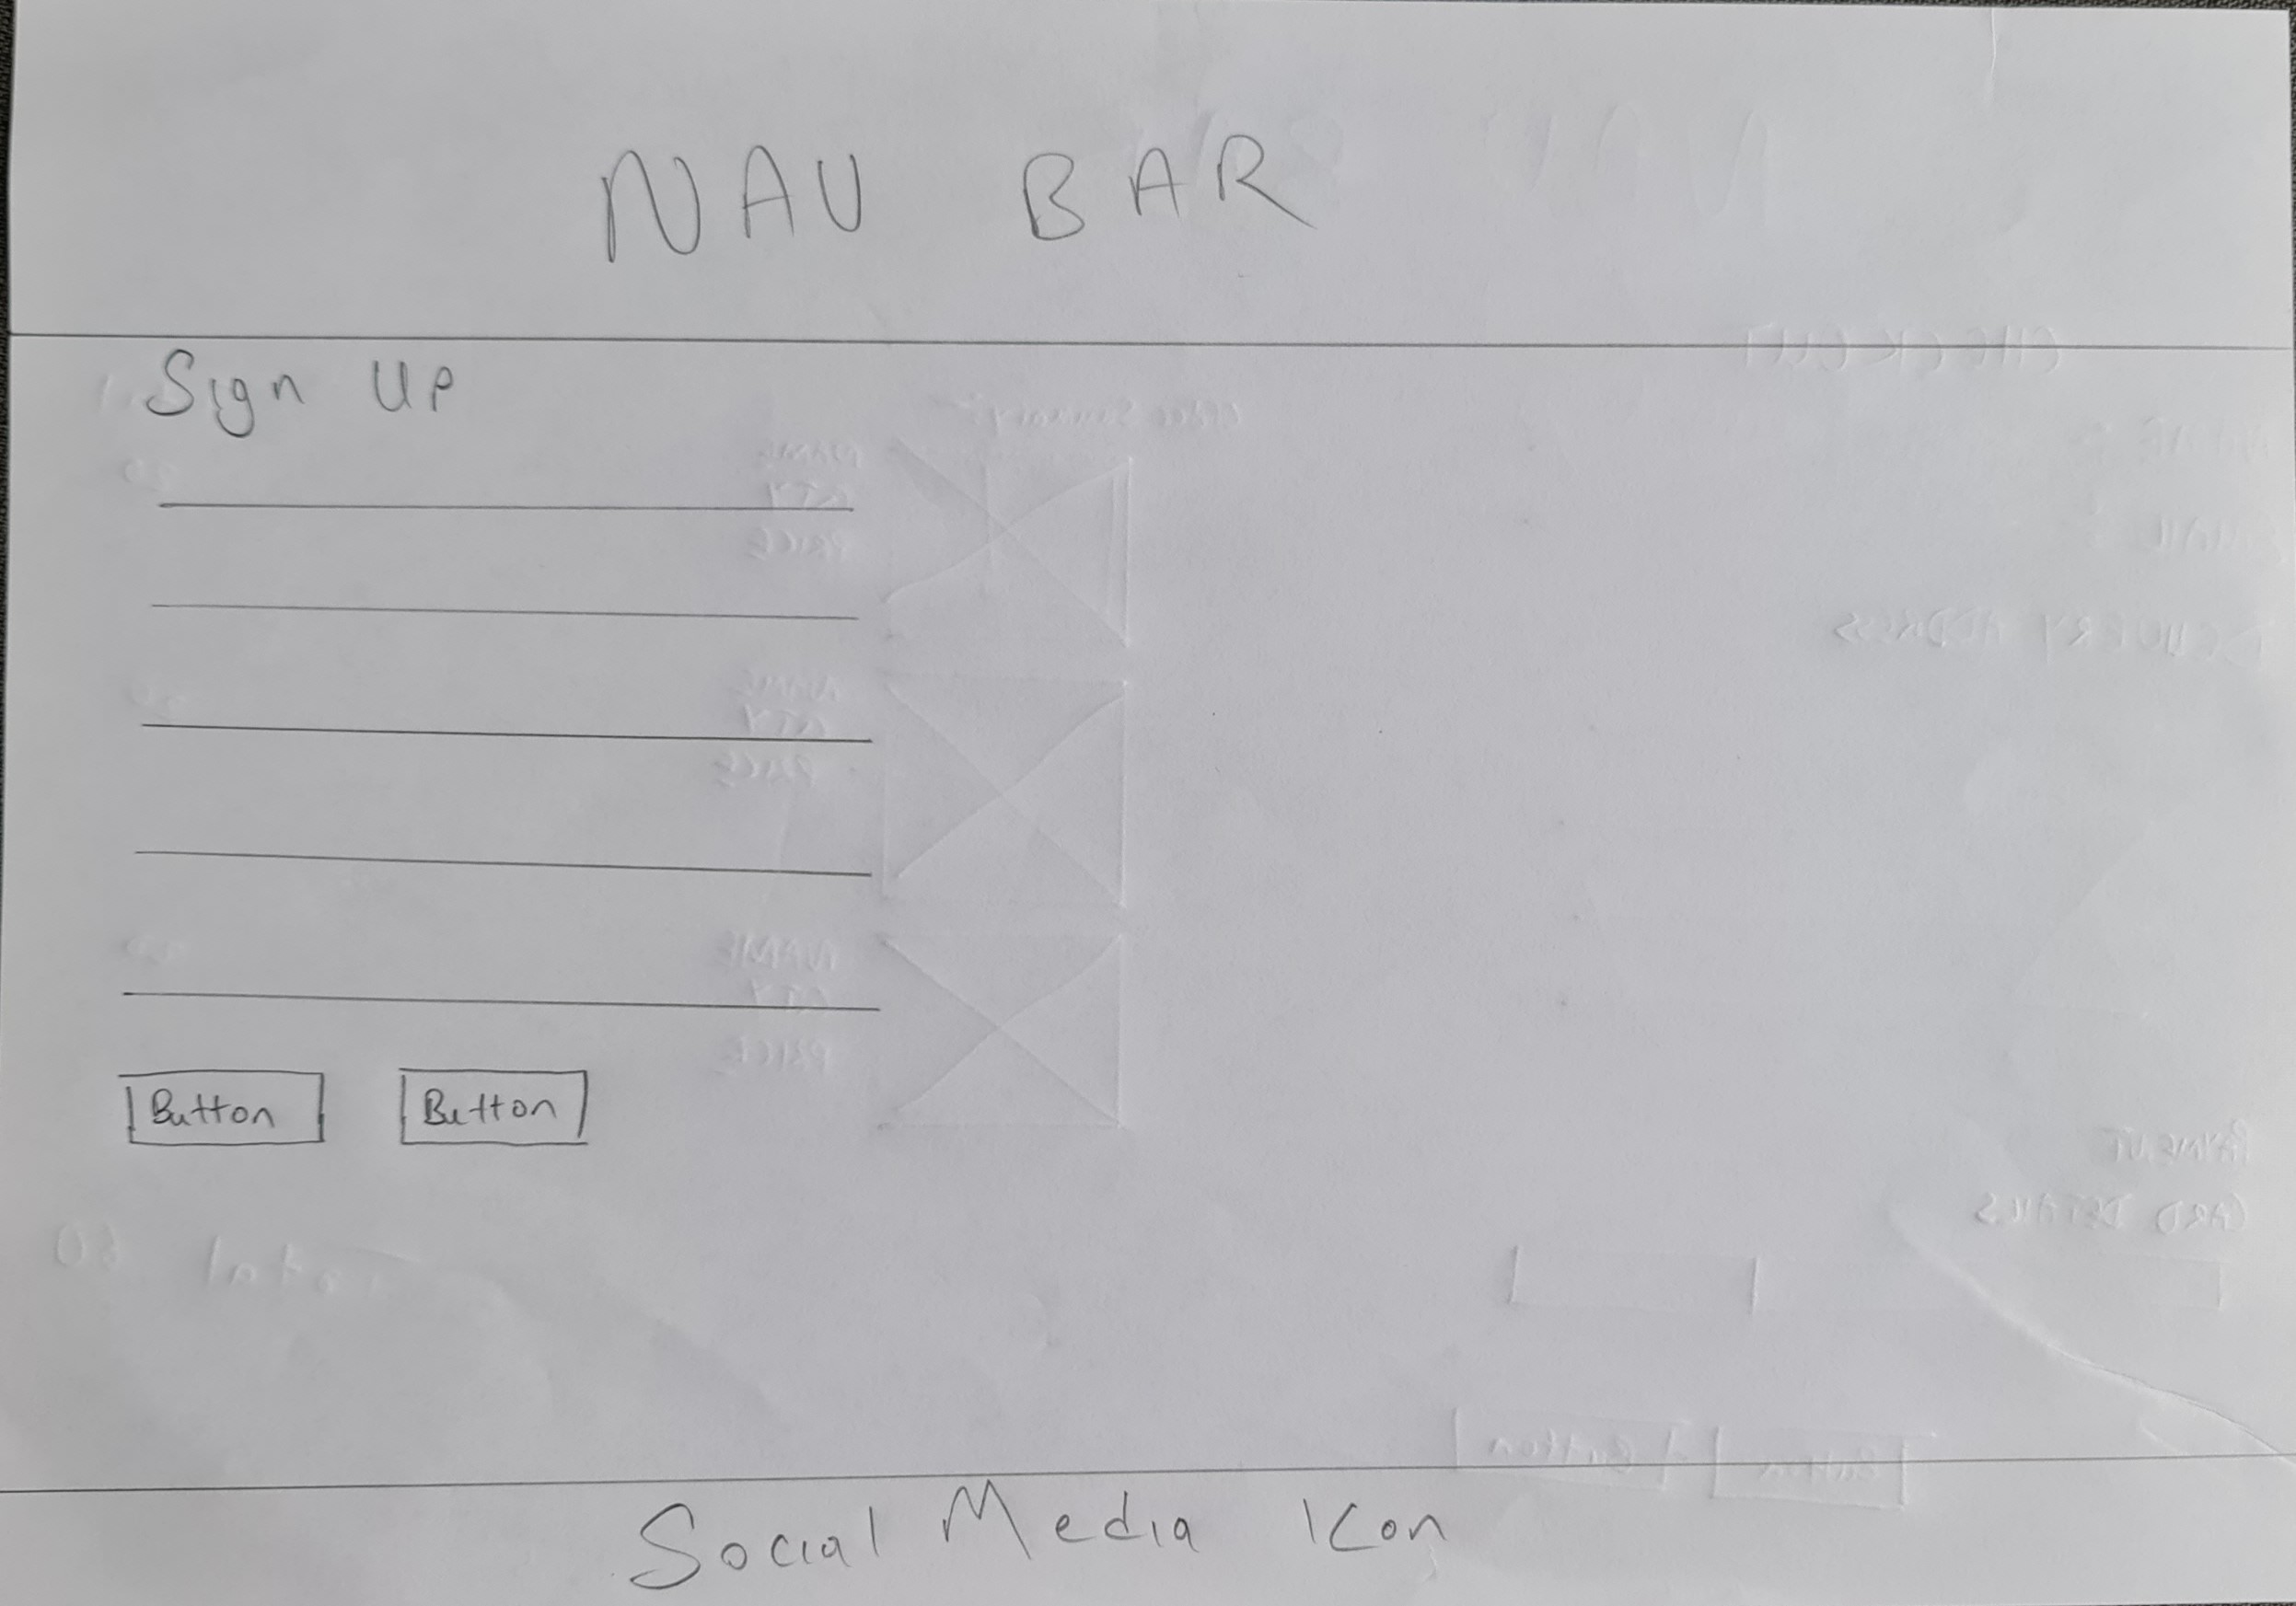 NAV BAR
Sign UP
Button Button
Social Media Icon